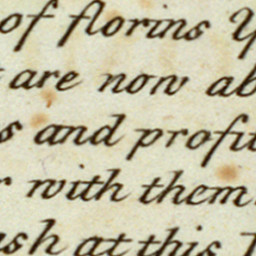 of florins
are now ab
and profit
with them
ash at this